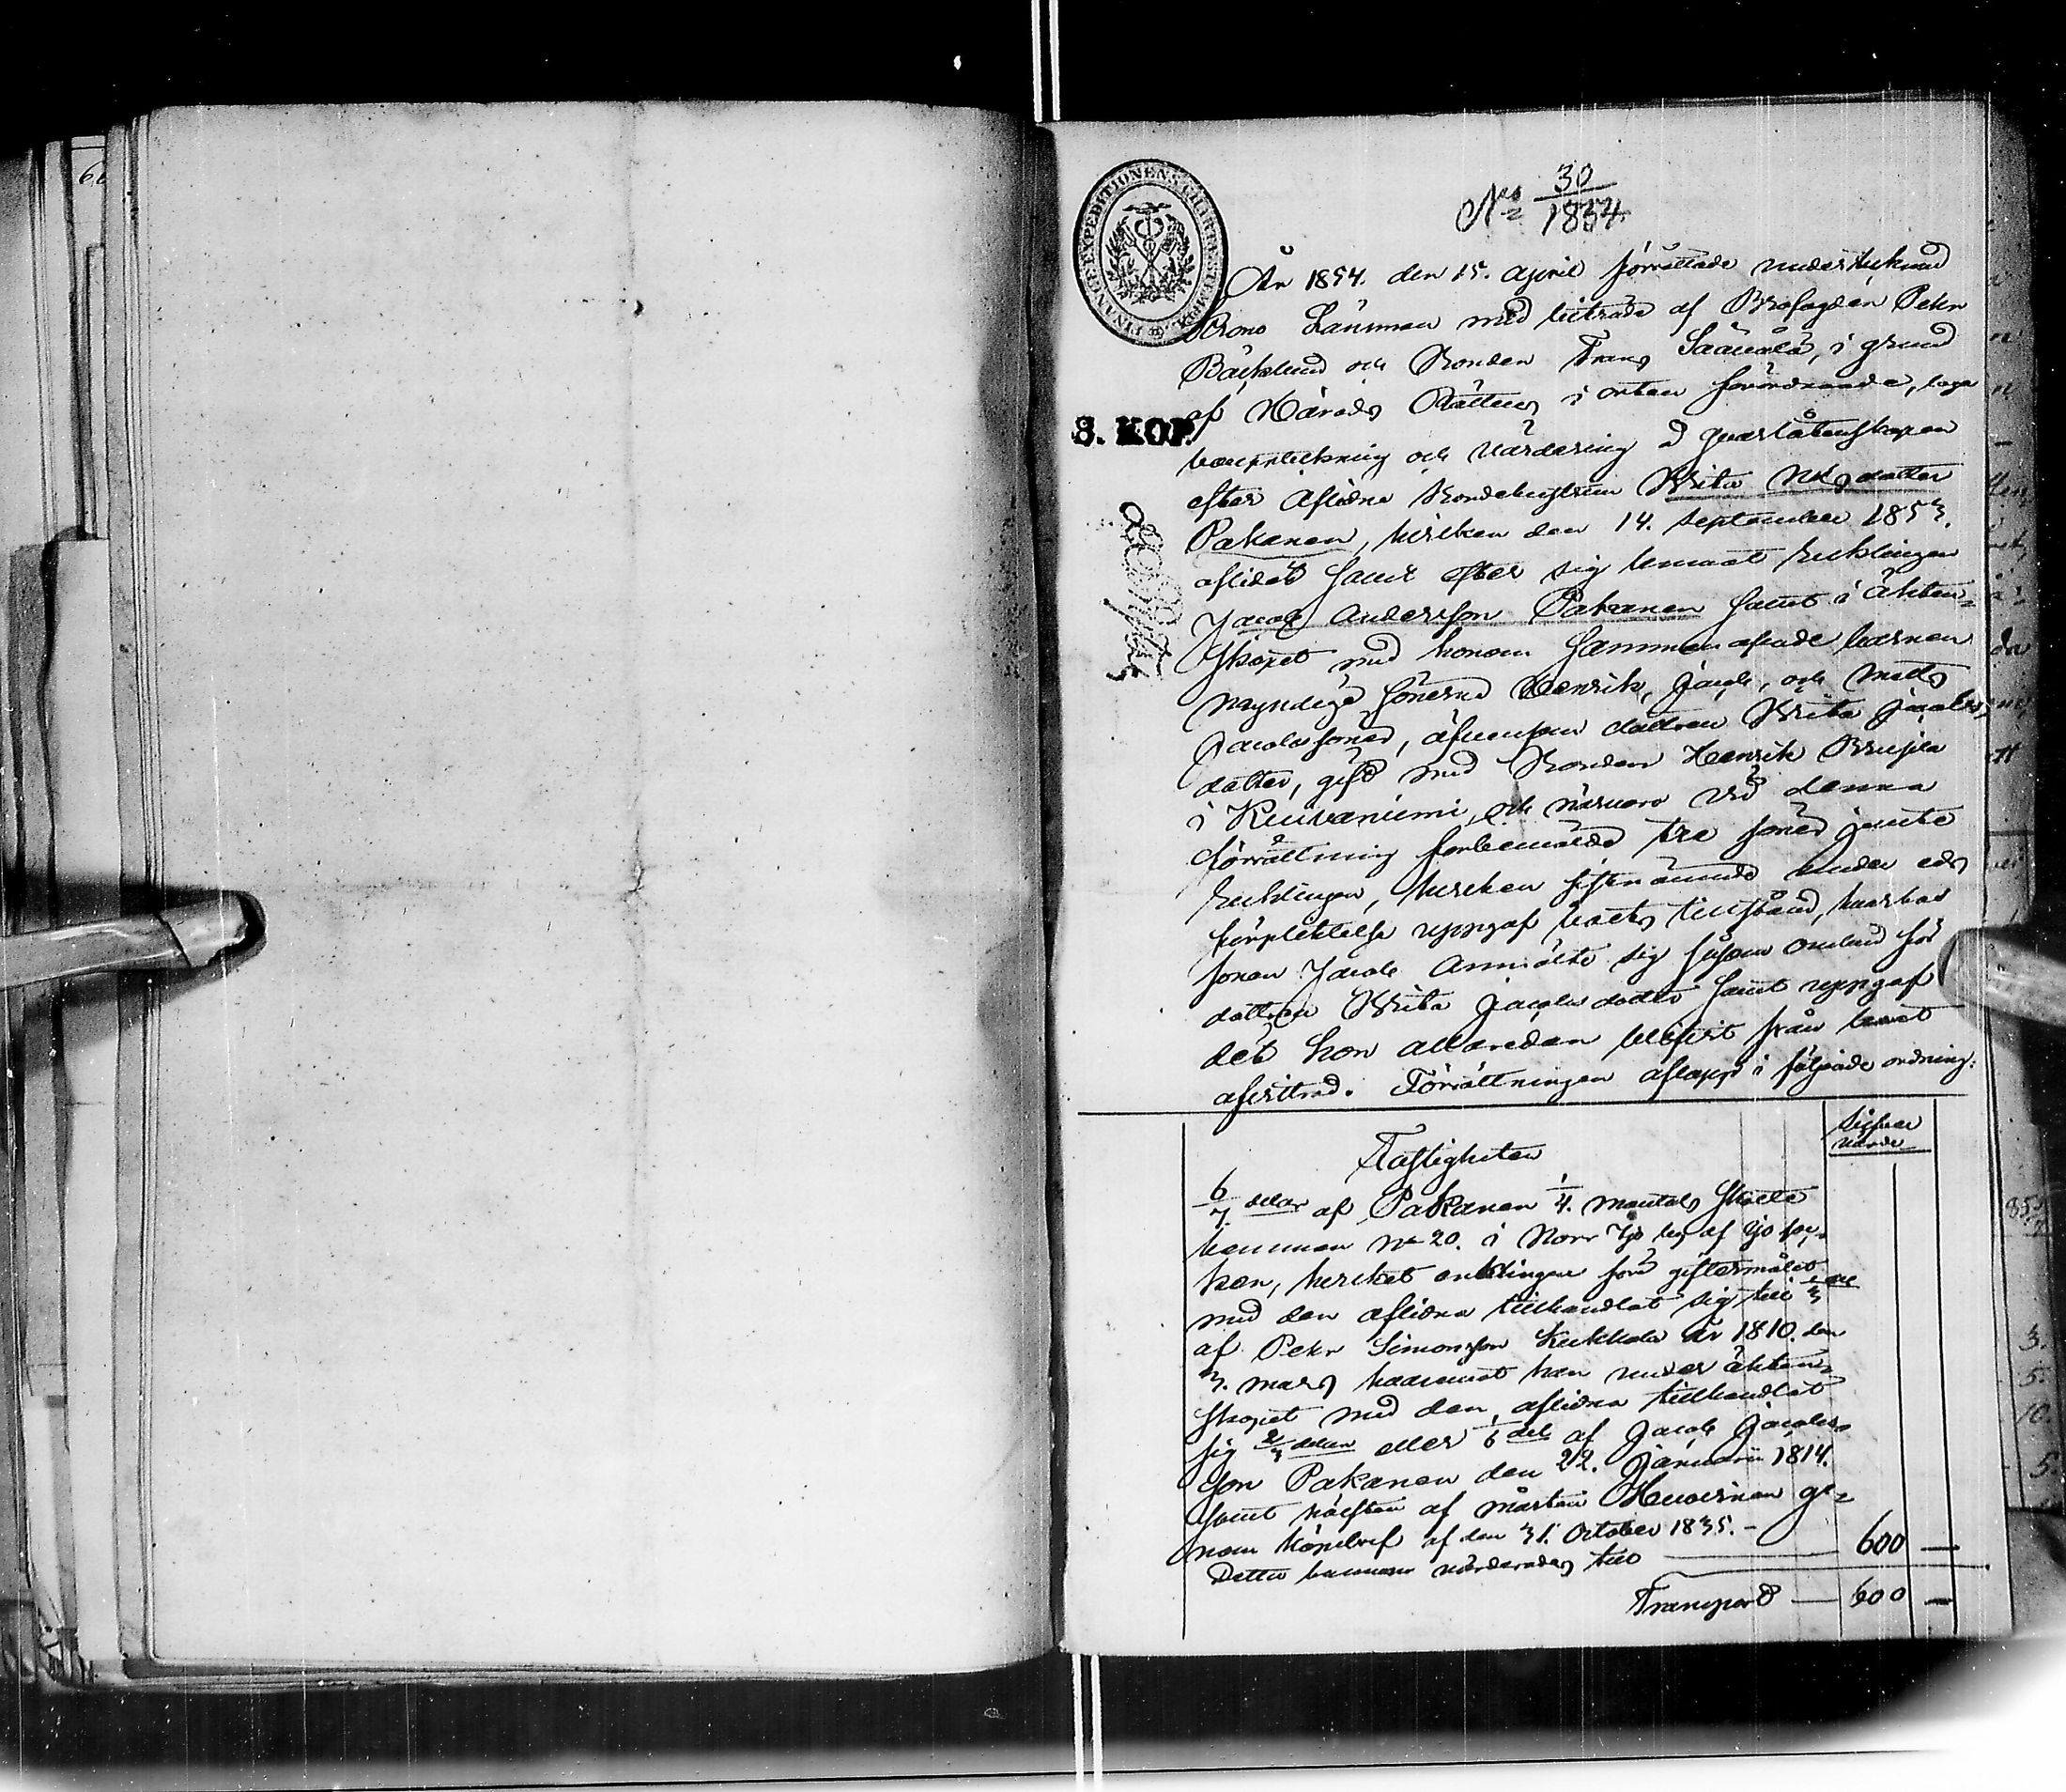 No 30/1854.
FINANCE EXPEDITIONENS CHARTÆ STEMPEL
År 1854. den 15. April förrättade undertecknad
Krono Länsman med biträde af Brofogden Petter
Bäcklund och Bonden Frans Säävälä, i grund
af Härads Rättens i orten förordnande, laga
8. KOP.
bouppteckning och värdering å qvarlåtenskapen
efter aflidna Bondehustrun Brita Matsdotter
Pakanen, hvilken den 14. September 1853.
aflidit samt efter sig lemnat Enklingen
Jacob Andersson Pakanen samt i äkten-
skapet med honom sammanaflade barnen
myndige Sönerne Henrik, Jacob, och Matts
Jacobssöner, äfvensom dottren Brita Jacobs
dotter, gift med Bonden Henrik
i Kuivaniemi, och närvoro vid denna
förrättning förbemälde tre söner jemte
Enklingen, hvilken sistnämnde under eds
förpliktelse uppgaf boets tillstånd, hvarhos
sonen Jacob Anmälte sig såsom ombud för
dottren Brita Jacobsdotter samt uppgaf
det hon allaredan blifvit från boet
afvittrad. Förrättningen aflopp i följande ordning:
Silfver
värde
Fastigheten
6/7 delar af Pakanen 1/4. mantals Skatte
hemman No 20. i Norr Ijo by af Ijo soc-
ken, hvilket enklingen före giftermålet
med den aflidna tillhandlat sig till 1/3 del
af Petter Simonsson Kukkola år 1810. den
3. mars hvaremot han under äkten-
skapet med den aflidna tillhandlat
sig 2/3 delar eller 1/6 del af Jacob Jacobs-
son Pakanen den 22. Januarii 1814.
samt hälften af Mårten ge-
nom köpebref af den 31. October 1835. -
Detta hemman värderades till 600 —
Transport — 600 —